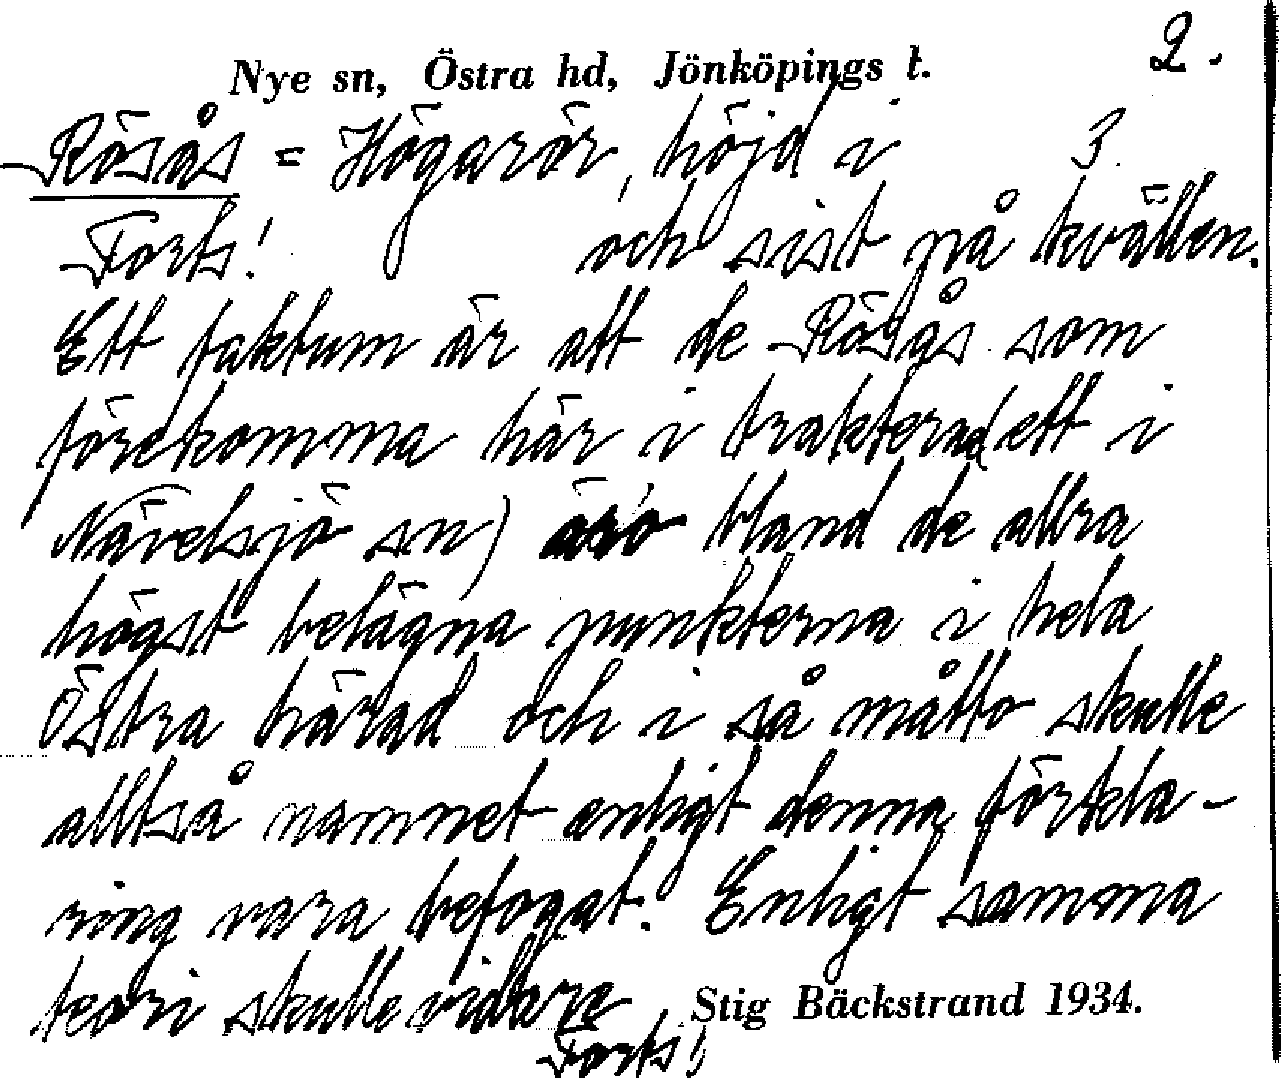 2.
Nye sn, Östra hd, Jönköpings l.
Rösås = Högarör, höjd i 3.
Forts! och sist på kvällen.
Ett faktum är att de Rösås som
förekomma här i trakterna (ett i
Nävelsjö sn) äro bland de allra
högst belägna punkterna i hela
Östra härad och i så måtto skulle
alltså namnet enligt denna förkla-
ring vara befogat. Enligt samma
teori skulle vidare
Stig Bäckstrand 1934.
Forts!